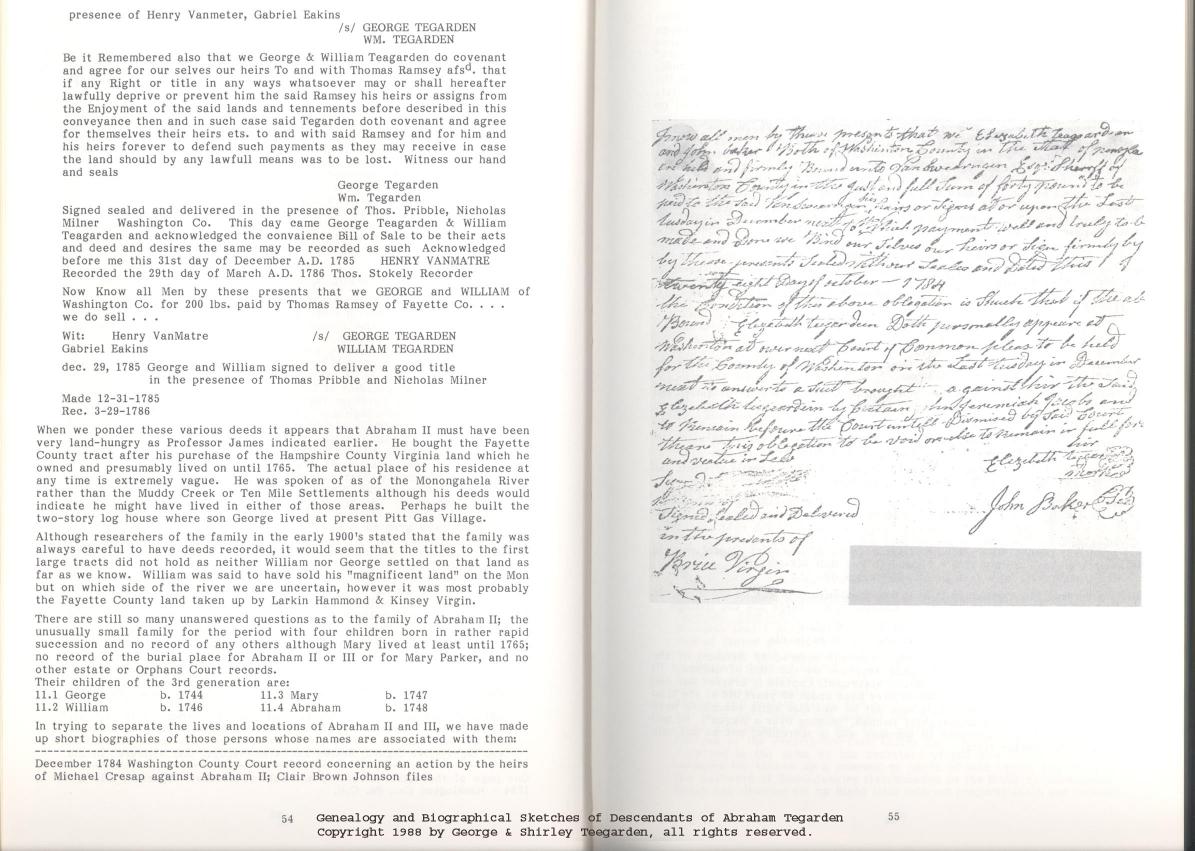 presence of Henry Vanmeter, Gabriel Eakins
/s/ GEORGE TEGARDEN
WM. TEGARDEN
Be it Remembered also that we George & William Teagarden do covenant
and agree for our selves our heirs To and with Thomas Ramsey afsd. that
if any Right or title in any ways whatsoever may or shall hereafter
lawfully deprive or prevent him the said Ramsey his heirs or assigns from
the Enjoyment of the said lands and tennements before described in this
conveyance then and in such case said Tegarden doth covenant and agree
for themselves their heirs ets. to and with said Ramsey and for him and
his heirs forever to defend such payments as they may receive in case
the land should by any lawfull means was to be lost. Witness our hand
and seals
George Tegarden
Wm. Tegarden
Signed sealed and delivered in the presence of Thos. Pribble, Nicholas
Milner Washington Co. This day came George Tegarden & William
Teagarden and acknowledged the convaience Bill of Sale to be their acts
and deed and desires the same may be recorded as such Acknowledged
before me this 31st day of December A.D. 1785 HENRY VANMATRE
Recorded the 29th day of March A.D. 1786 Thos. Stokely Recorder
Now Know all Men by these presents that we GEORGE and WILLIAM of
Washington Co. for 200 lbs. paid by Thomas Ramsey of Fayette Co. . . .
we do sell . . .
Wit: Henry VanMatre /s/ GEORGE TEGARDEN
Gabriel Eakins WILLIAM TEGARDEN
dec. 29, 1785 George and William signed to deliver a good title
in the presence of Thomas Pribble and Nicholas Milner
Made 12-31-1785
Rec. 3-29-1786
When we ponder these various deeds it appears that Abraham II must have been
very land-hungry as Professor James indicated earlier. He bought the Fayette
County tract after his purchase of the Hampshire County Virginia land which he
owned and presumably lived on until 1765. The actual place of his residence at
any time is extremely vague. He was spoken of as of the Monongahela River
rather than the Muddy Creek or Ten Mile Settlements although his deeds would
indicate he might have lived in either of those areas. Perhaps he built the
two-story log house where son George lived at present Pitt Gas Village.
Although researchers of the family in the early 1900's stated that the family was
always careful to have deeds recorded, it would seem that the titles to the first
large tracts did not hold as neither William nor George settled on that land as
far as we know. William was said to have sold his "magnificent land" on the Mon
but on which side of the river we are uncertain, however it was most probably
the Fayette County land taken up by Larkin Hammond & Kinsey Virgin.
There are still so many unanswered questions as to the family of Abraham II; the
unusually small family for the period with four children born in rather rapid
succession and no record of any others although Mary lived at least until 1765;
no record of the burial place for Abraham II or III or for Mary Parker, and no
other estate or Orphans Court records.
Their children of the 3rd generation are:
11.1 George b. 1744 11.3 Mary b. 1747
11.2 William b. 1746 11.4 Abraham b. 1748
In trying to separate the lives and locations of Abraham II and III, we have made
up short biographies of those persons whose names are associated with them:
December 1784 Washington County Court record concerning an action by the heirs
of Michael Cresap against Abraham II; Clair Brown Johnson files
54
Know all men by these presents that we Elizabeth Teagardean
and John baker Both of Washinton County in the State of
are held and firmly Bound unto Esqr. Sherrff of
Washinton County in the Just and full Sum of forty pound to be
paid to the Said heirs or at or upon the Last
tusday in December next for Which payment well and truly to be
made and Done we Bind our Selves our heirs or Sign firmly by
by these presents Sealed with our Seales and Dated this
twenty eight Day of october - 1784
the Condition of the above obligation is Shuch that if the ab
Bound Elizabeth tegardein Doth personally appeare at
Washinton at over next Court of Common pleas to be held
for the County of Washinton on the Last tusday in December
next to answer to a Sut brought against hir the Said
Elizabeth by Certain John Jeremiah Jacobs and
to Remain before the Court untill Dismised by Said Court
then this obligation to be void or else to Remain in full for
and vertue in Law
hir
Elizabeth
mark
Signed Sealed and Delivered
John Baker
in the presents of
Brice Virgin
55
Genealogy and Biographical Sketches of Descendants of Abraham Tegarden
Copyright 1988 by George & Shirley Teegarden, all rights reserved.